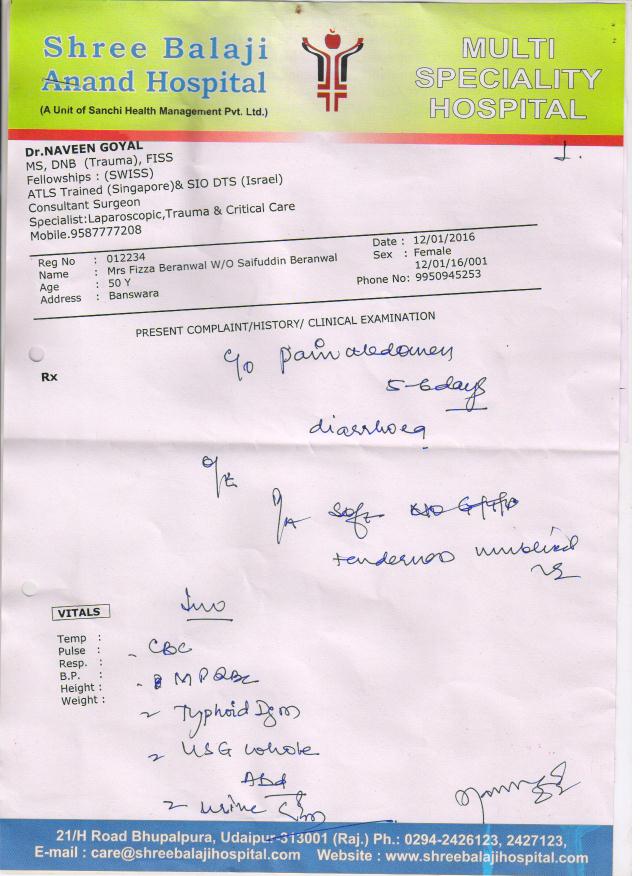 Shree Balaji
Anand Hospital
(A Unit of Sanchi Health Management Pvt. Ltd.)
MULTI
SPECIALITY
HOSPITAL
1.
Dr.NAVEEN GOYAL
MS, DNB (Trauma), FISS
Fellowships : (SWISS)
ATLS Trained (Singapore)& SIO DTS (Israel)
Consultant Surgeon
Specialist:Laparoscopic,Trauma & Critical Care
Mobile.9587777208
Reg No : 012234
Name : Mrs Fizza Beranwal W/O Saifuddin Beranwal
Age : 50 Y
Address : Banswara
Date : 12/01/2016
Sex : Female
12/01/16/001
Phone No: 9950945253
PRESENT COMPLAINT/HISTORY/ CLINICAL EXAMINATION
Rx
c/o pain abdomen
5-6 days
diarrhoea
O/E
P/A soft
tenderness umblical
Inv
VITALS
Temp :
Pulse :
Resp. :
B.P. :
Height :
Weight :
- CBC
- MP QBC
- Typhoid Igm
- USG whole
Abd
- urine
21/H Road Bhupalpura, Udaipur-313001 (Raj.) Ph.: 0294-2426123, 2427123,
E-mail : care@shreebalajihospital.com Website : www.shreebalajihospital.com